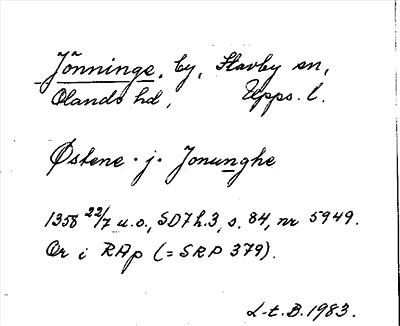 Jönninge, by, Stavby sn,
Olands hd, Upps. l.
Østene · j · Jonunghe
1358 22/7 u.o., SD7h.3, s. 84, nr 5949.
Or i RAp (= SRP 379).
L-t. B. 1983.